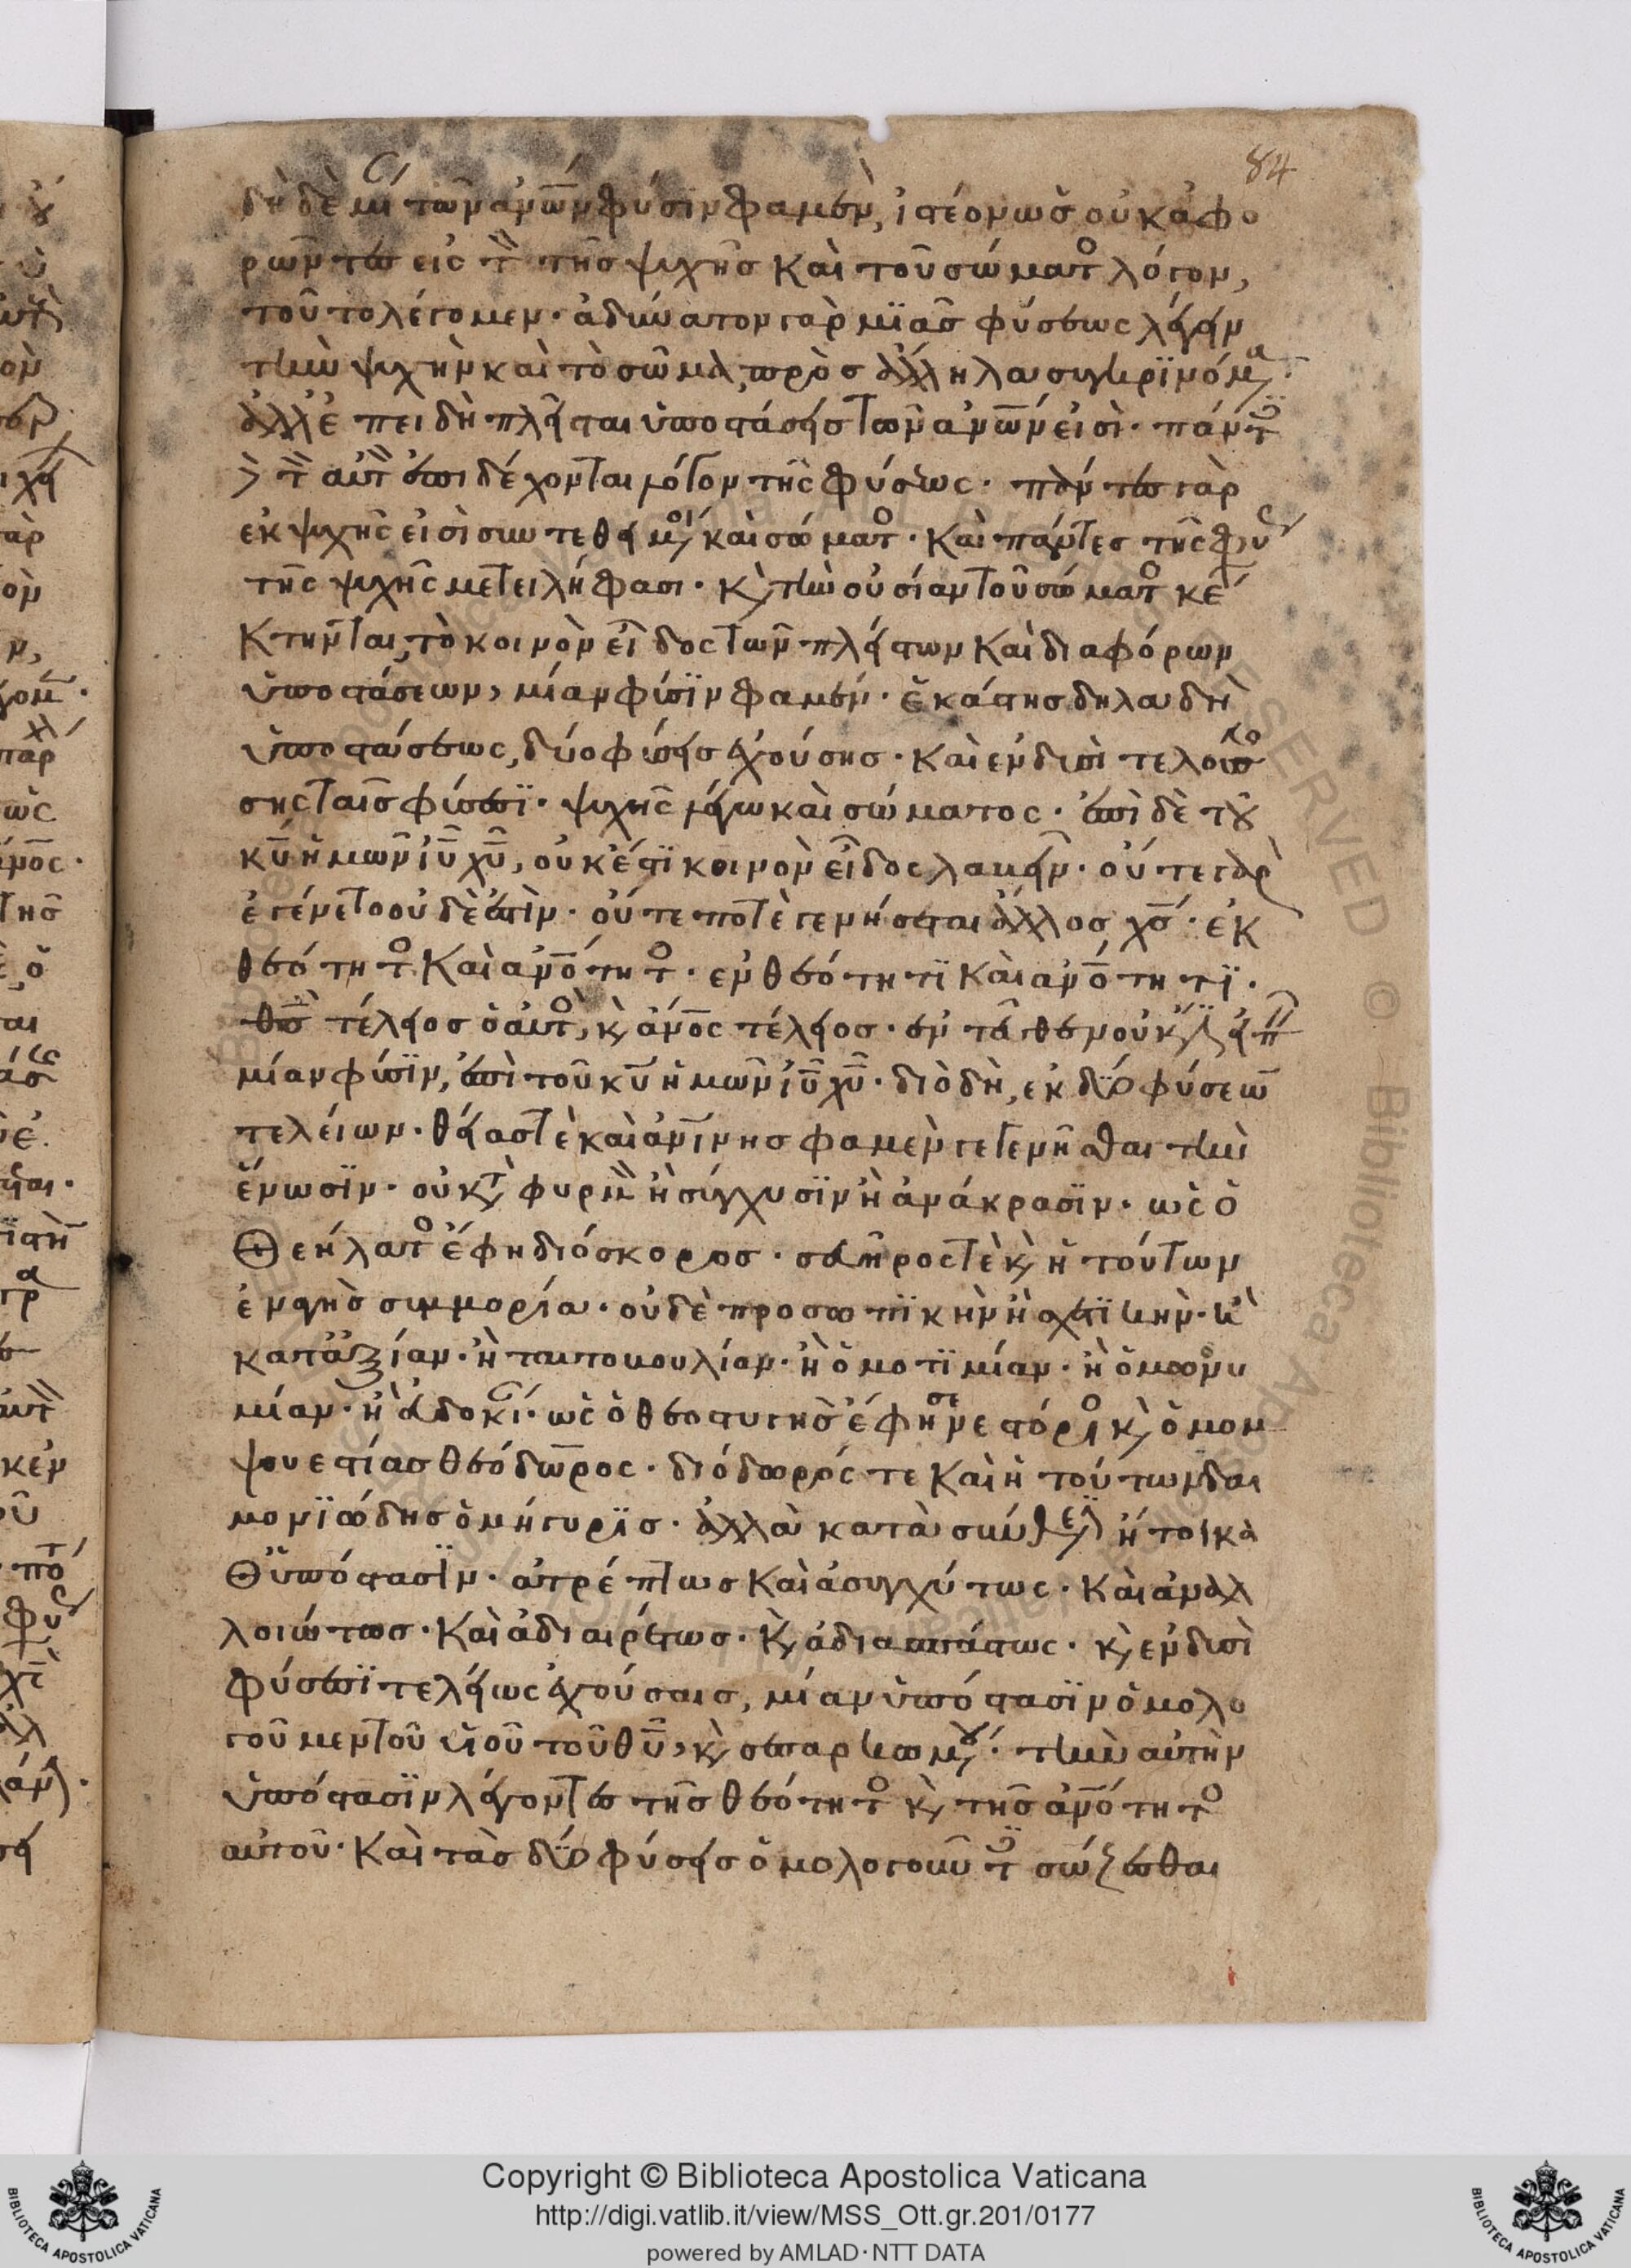 84
δὴ δὲ μί τῶν ἀνω̅ν φύσϊν φαμὲν, ἰστέον ὡς οὐκ ἀφο
ρῶντες εἰς τ̅ τῆς ψυχῆς καὶ τοῦ σώματ̅ο λόγον,
τοῦτο λέγομεν· ἀδύνατον γὰρ μϊᾶς φύσεως λέγειν
τὴν ψυχὴν καὶ τὸ σῶμα, πρὸς ἄλληλα συγκρϊνόμ̅α·
ἀλλ' ἐπειδὴ πλεῖσται ὑποστάσεις τῶν ἀνω̅ν εἰσὶ· πάντ̅
δὲ τ̅ αὐτ̅ ἐπιδέχονται λόγον τῆς φύσεως· πάντες γὰρ
ἐκ ψυχῆς εἰσὶ συντεθειμ̅οι καὶ σώματ̅ο· καὶ πάντες τῆς φύσ
τῆς ψυχῆς μετειλήφασι· κ̀ τὴν οὐσίαν τοῦ σώματ̅ο κέ
κτηνται, τὸ κοινὸν εἶδος τῶν πλείστων καὶ διαφόρων
ὑποστάσεων, μίαν φύσϊν φαμὲν· ἑκάστης δηλαδὴ
ὑποστάσεως, δύο φύσεις ἐχούσης· καὶ ἐν δυσὶ τελούσ
σης ταῖς φύσεσϊ· ψυχῆς λέγω καὶ σώματος· ἐπὶ δὲ τοῦ
κυ̅ ἡμῶν ἰυ̅ χυ̅, οὐκ ἔστϊ κοινὸν εἶδος λαβεῖν· οὔτε γὰρ
ἐγένετο οὐδὲ ἐστὶν· οὔτε ποτὲ γενήσεται ἄλλος χς̅· ἐκ
θεότητ̅ο καὶ ἀνο̅τητ̅ο· ἐν θεότητϊ καὶ ἀνο̅τητϊ·
θς̅ τέλειος ὁ αὐτ̅ο, κ̀ ἄνο̅ς τέλειος· ἐντεῦθεν οὐκ ἔστιν εἰπ̅
μίαν φύσϊν, ἐπὶ τοῦ κυ̅ ἡμῶν ἰυ̅ χυ̅· διὸ δὴ, ἐκ δύο φύσεω̅
τελείων· θείας τὲ καὶ ἀνι̅νης φαμὲν γεγενῆσθαι τὴν
ἕνωσϊν· οὐ κατὰ φυρμ̅ ἢ σύγχυσϊν ἢ ἀνάκρασϊν· ὡς ὁ
Θεήλατ̅ο ἔφη διόσκορος· σευῆρος τὲ κ̀ ἡ τούτων
ἐναγὴς συμμορία· οὐδὲ προσωπϊκὴν ἢ σχετϊκὴν· ἢ
κατ' ἀξίαν· ἢ ταυτοβουλίαν· ἢ ὁμοτϊμίαν· ἢ ὁμωνυ
μίαν· ἢ εὐδοκί· ὡς ὁ θεοστυγὴς ἔφησε νεστόρι̅ο κ̀ ὁ μομ
ψουεστίας θεόδω̅ρος· διόδωρός τε καὶ ἡ τούτων δαι
μονϊώδης ὁμήγυρϊς· ἀλλὰ κατὰ σύνθε̅ ἤτοι κα
θ' ὑπόστασϊν· ἀτρέπτως καὶ ἀσυγχύτως· καὶ ἀναλ
λοιώτως· καὶ ἀδιαιρέτως· κ̀ ἀδιασπάστως· κ̀ ἐν δυσὶ
φύσεσϊ τελείως ἐχούσαις, μίαν ὑπόστασϊν ὁμολο
γοῦμεν τοῦ υἱοῦ τοῦ θυ̅, κ̀ σεσαρκωμ̅ου· τὴν αὐτὴν
ὑπόστασϊν λέγοντες τῆς θεότητ̅ο κ̀ τῆς ἀνο̅τητ̅ο
αὐτοῦ· καὶ τὰς δύο φύσεις ὁμολογοῦντ̅ σώζεσθαι
Copyright © Biblioteca Apostolica Vaticana
http://digi.vatlib.it/view/MSS_Ott.gr.201/0177
powered by AMLAD·NTT DATA
BIBLIOTECA APOSTOLICA VATICANA
BIBLIOTECA APOSTOLICA VATICANA